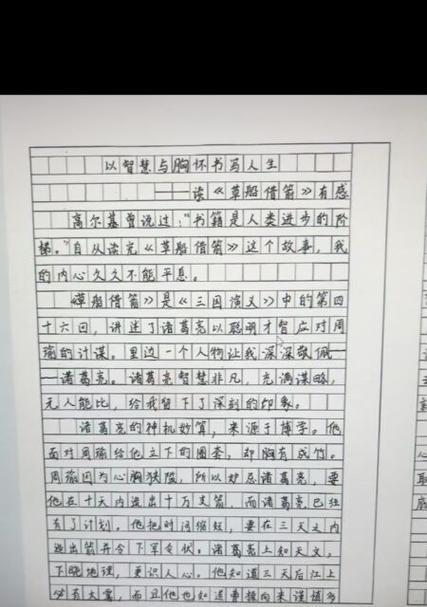 以智慧与胸怀书写人生
——读《草船借箭》有感
高尔基曾说过:“书籍是人类进步的阶
梯。”自从读完《草船借箭》这个故事,我
的内心久久不能平息。
《草船借箭》是《三国演义》中的第四
十六回,讲述了诸葛亮以聪明才智应对周
瑜的计谋。里边一个人物让我深深敬佩—
—诸葛亮。诸葛亮智慧非凡,充满谋略,
无人能比,给我留下了深刻的印象。
诸葛亮的神机妙算,来源于博学。他
面对周瑜给他立下的圈套,却胸有成竹。
周瑜因为心胸狭隘,所以妒忌诸葛亮,要
他在十天内造出十万支箭,而诸葛亮已经
有了计划。他把时间缩短,要在三天之内
造出箭并令下军令状。诸葛亮上知天文,
下晓地理,更识人心。他知道三天后江上
必有大雾,而且他也知道曹操向来谨慎多